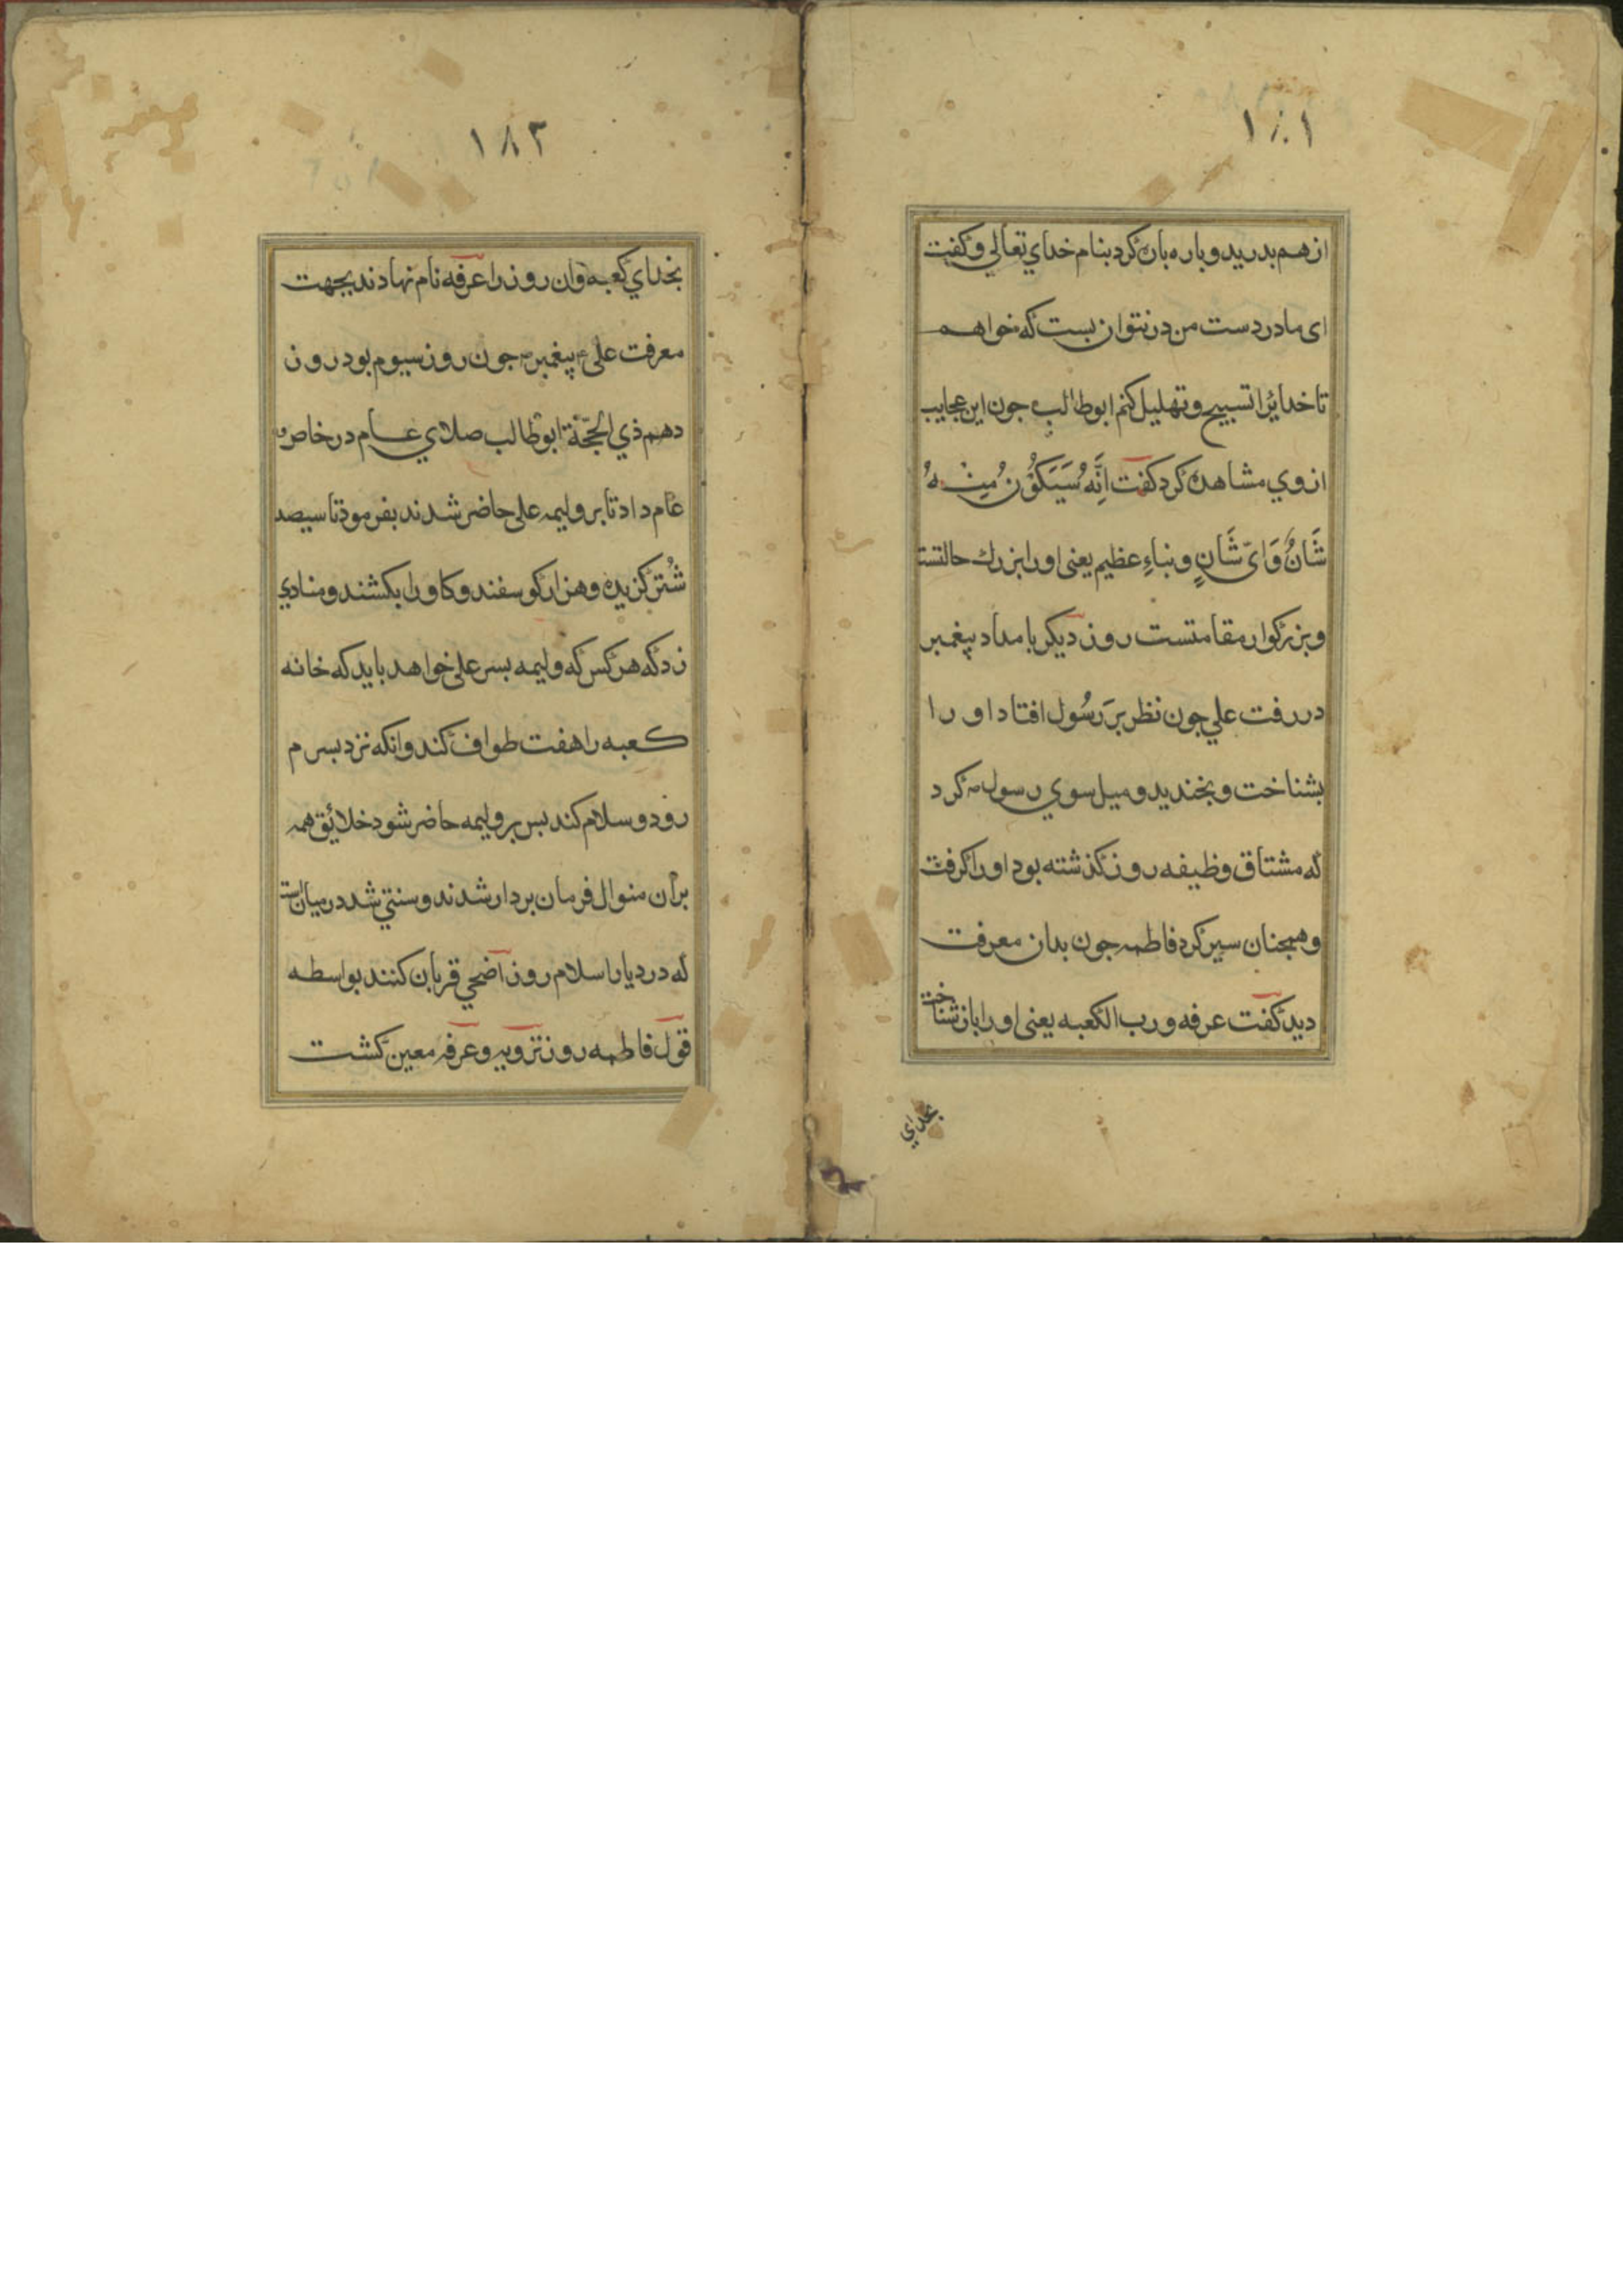 ١٨١
از هم بدرید و باره باره کرد بنام خدای تعالی و کفت
ای مادر دست من در نتوان بست که خواهم
تا خدایرا تسبیح و تهلیل کنم ابوطالب جون این عجایب
از وی مشاهده کرد کفت اِنَّهُ سَیَکُوْنُ مِنْهُ
شَانٌ وَایّ شَانٍ و نباءِ عظیم یعنی او را بزرک حالتست
و بزرکوار مقامتست روز دیکر بامداد پیغمبر
در رفت علی جون نظر بَر رَسُول افتاد او را
بشناخت و بخندید و میل سوی رسول ص کرد
که مشتاق وظیفه روز کذشته بود او را کرفت
و همجنان سیر کرد فاطمه جون بدان معرفت
دید کفت عرفه و رب الکعبه یعنی او را باز شناخت
بخدای
١٨٢
بخدای کعبه و ان روز را عرفه نام نهادند بجهت
معرفت علی ع پیغمبر ص جون روز سیوم بود روز
دهم ذی الحجّة ابوطالب صلای عام در خاص و
عام داد تا بر ولیمه علی حاضر شدند بفرمود تا سیصد
شُتر کزیده و هزار کوسفند و کاو را بکشند و منادی
زد که هر کس که ولیمه بسر علی خواهد باید که خانه
کعبه را هفت طواف کند و انکه نزد بسرم
رود و سلام کند بس بر ولیمه حاضر شود خلائق همه
بر آن منوال فرمان بردار شدند و سنتی شد در میان است
که در دیار اسلام روز اضحی قربان کنند بواسطه
قول فاطمه روز ترویه و عرفه معین کشت